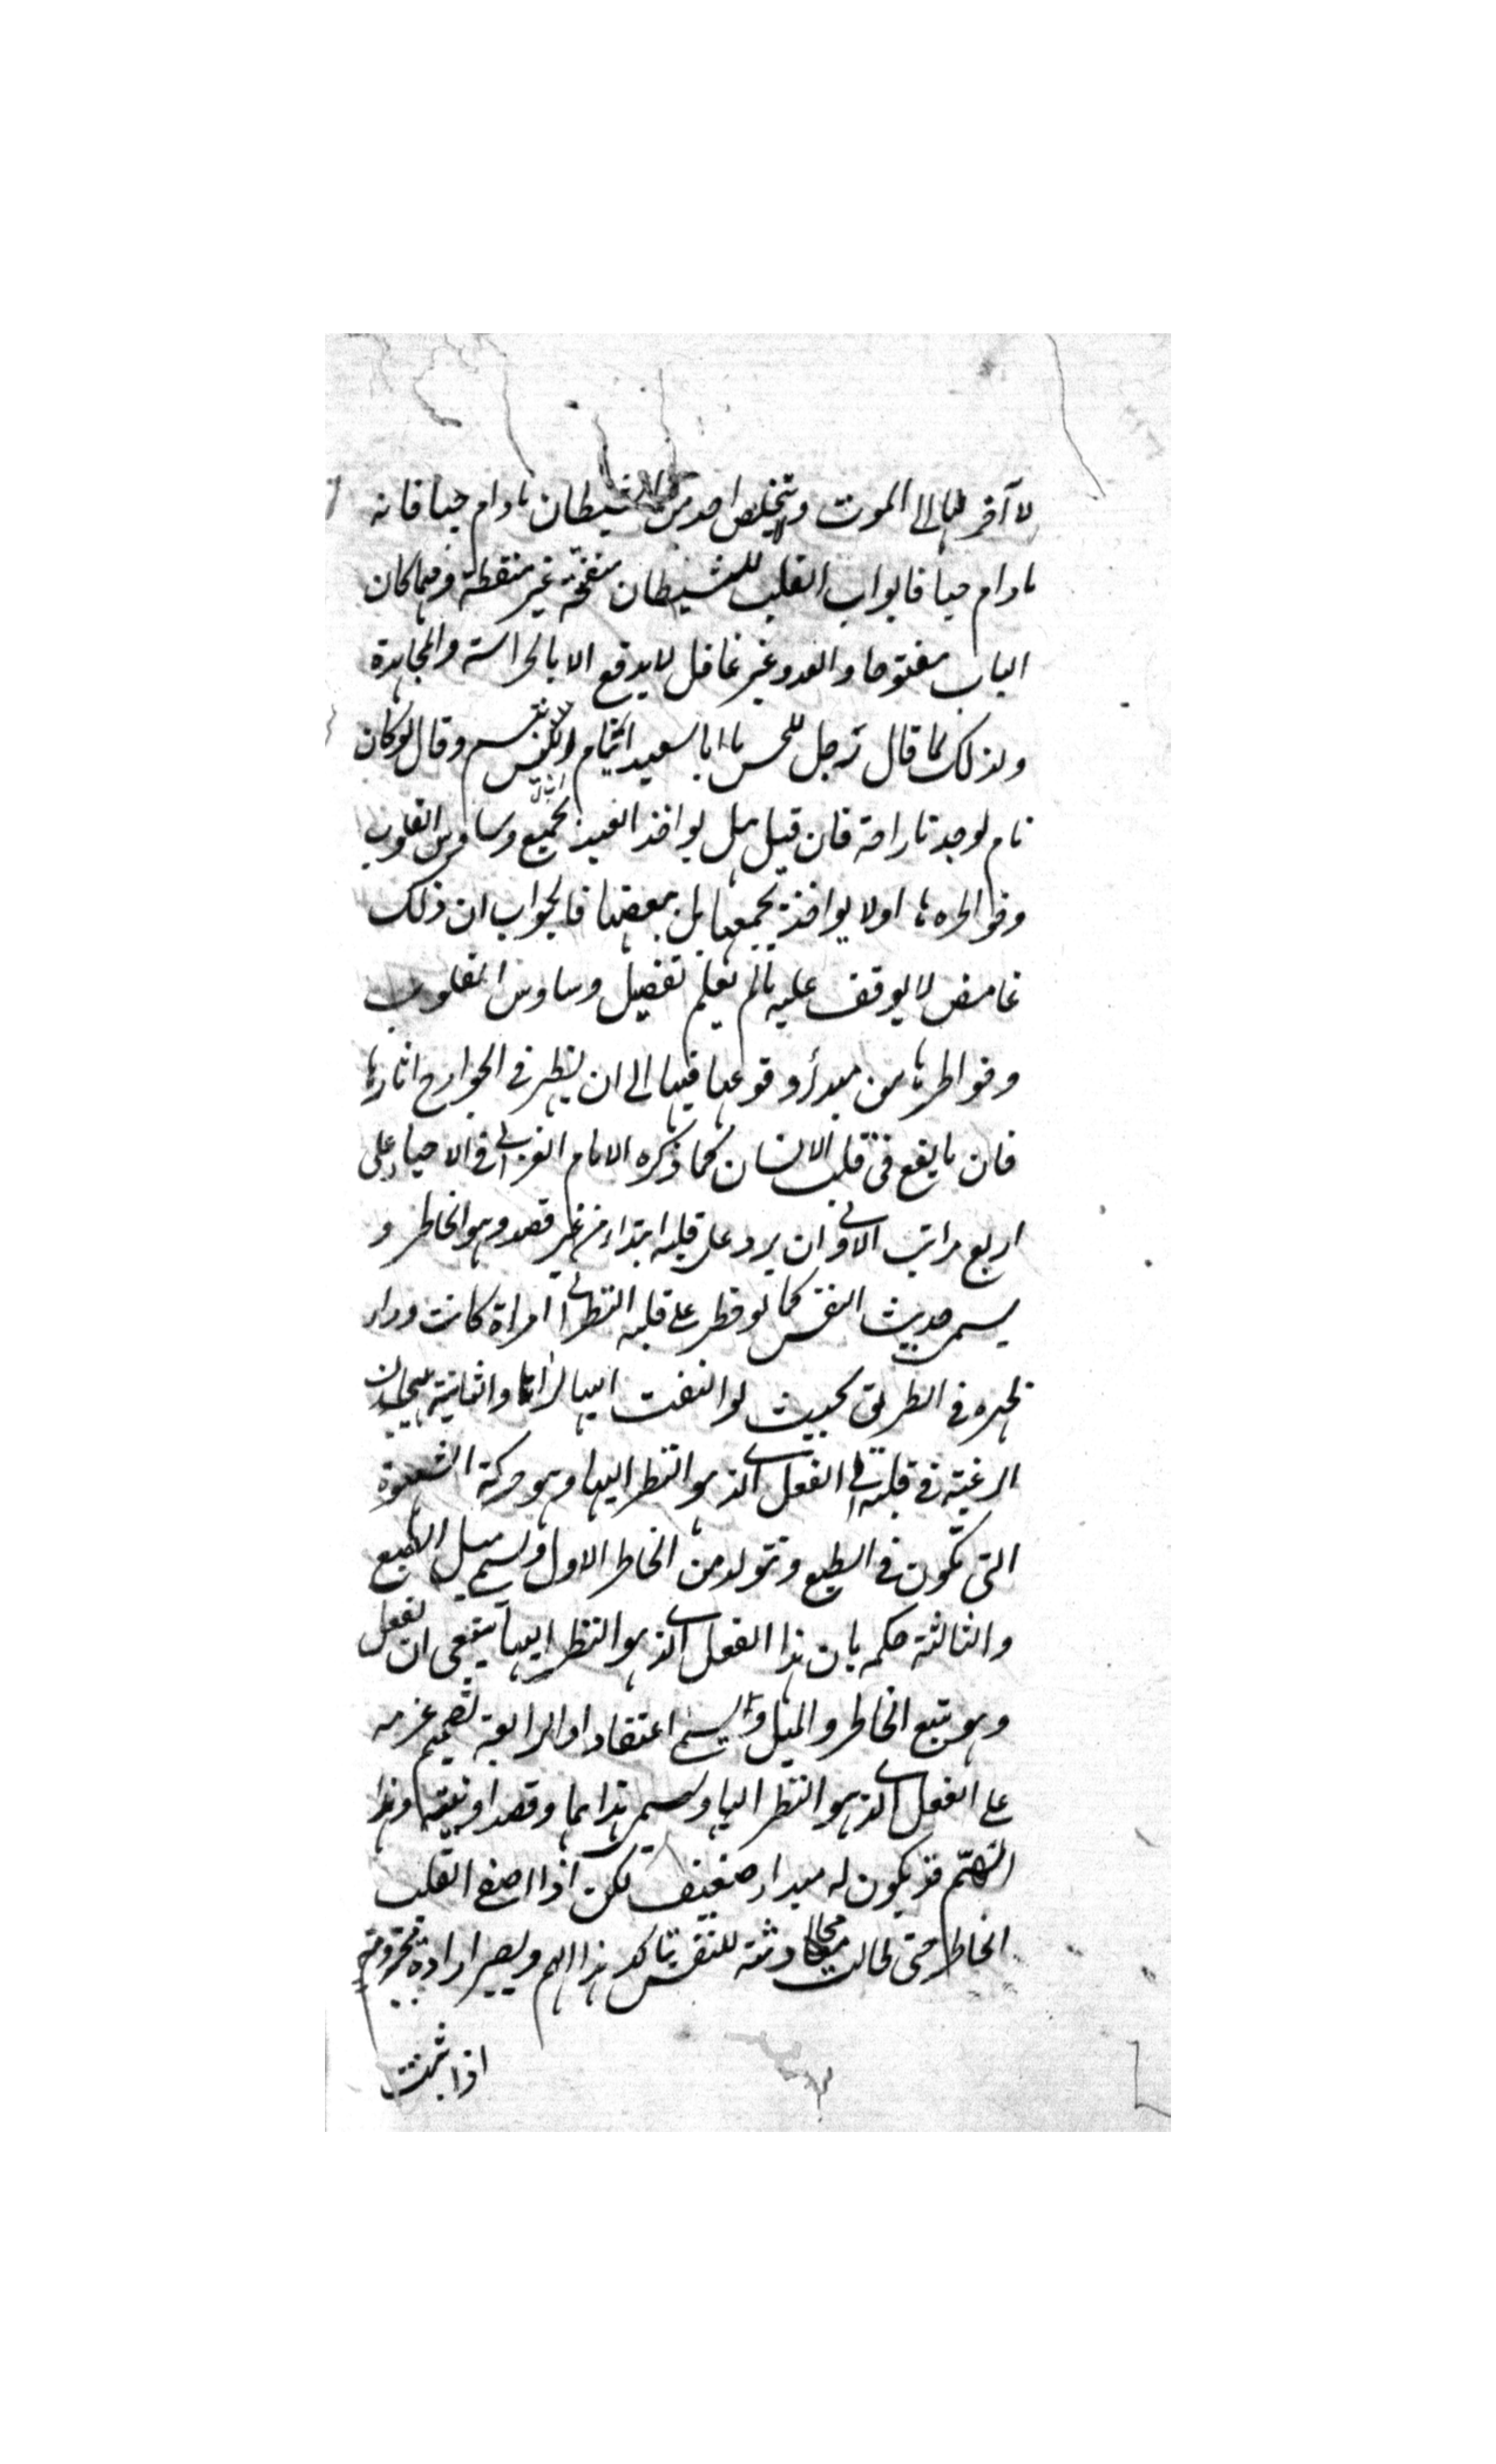 لا آخر لها الى الموت ولا يتخلص احد من الشيطان مادام حيا فانه
مادام حيا فابواب القلب للشيطان منفتحة غير منغلقة ومهما كان
الباب مفتوحا والعدو غير غافل لا يدفع الا بالحراسة والمجاهدة
ولذلك لما قال رجل للحسن يا ابا سعيد اينام ابليس فتبسم وقال لو كان
نام لوجدنا راحة فان قيل هل يواخذ العبد بجميع وساوس القلوب
وخواطرها او لا يواخذ بجميعها بل ببعضها فالجواب ان ذلك
غامض لا يوقف عليه ما لم يعلم تفصيل وساوس القلوب
وخواطرها من مبدأ وقوعها فيها الى ان يظهر في الجوارح اثارها
فان ما يقع في قلب الانسان كما ذكره الامام الغزالي في الاحياء على
اربع مراتب الاولى ان يرد على قلبه ابتداء من غير قصد وهو الخاطر و
يسمى حديث النفس كما لو خطر على قلبه النظر الى امراة كانت وراء
ظهره في الطريق بحيث لو التفت اليها لراها والثانية هيجان
الرغبة في قلبه الى الفعل الذي هو النظر اليها وهو حركة الشهوة
التي تكون في الطبع وتتولد من الخاطر الاول ويسمى ميل الطبع
والثالثة حكمه بان هذا الفعل الذي هو النظر اليها ينبغي ان يفعل
وهو يتبع الخاطر والميل ويسمى اعتقادا والرابعة تصميم عزمه
على الفعل الذي هو النظر اليها ويسمى هذا هما وقصدا ونية وهذا
الهم قد يكون له مبدا ضعيف لكن اذا اصغى القلب
الخاطر حتى طالت محادثته للنفس تاكد هذا الهم ويصير ارادة مجزومة
اذا ثبتت